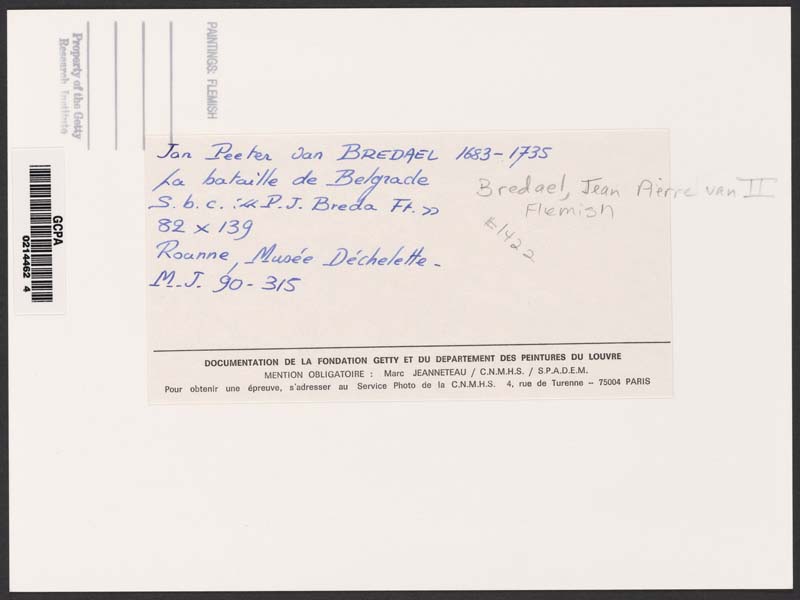 PAINTINGS: FLEMISH
Property of the Getty
Research Institute
GCPA
0214462 4
Jan Peeter van BREDAEL 1683-1735
La bataille de Belgrade
S.b.c. : « P.J. Breda Ft. »
82 x 139
Roanne, Musée Déchelette.
M.J. 90-315
Bredael, Jean Pierre van II
Flemish
E1422
DOCUMENTATION DE LA FONDATION GETTY ET DU DEPARTEMENT DES PEINTURES DU LOUVRE
MENTION OBLIGATOIRE : Marc JEANNETEAU / C.N.M.H.S. / S.P.A.D.E.M.
Pour obtenir une épreuve, s'adresser au Service Photo de la C.N.M.H.S. 4, rue de Turenne – 75004 PARIS